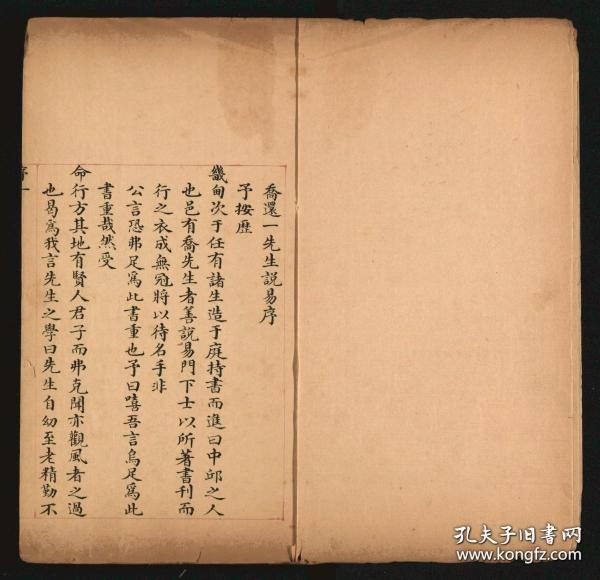 喬還一先生説易序
予按歴
畿甸次于任有諸生造于庭持書而進曰中邱之人
也邑有喬先生者善説易門下士以所著書刊而
行之衣成無冠將以待名手非
公言恐弗足爲此書重也予曰嘻吾言烏足爲此
書重哉然受
命行方其地有賢人君子而弗克聞亦觀風者之過
也曷爲我言先生之學曰先生自幼至老精勤不
序一
孔夫子旧书网
www.kongfz.com